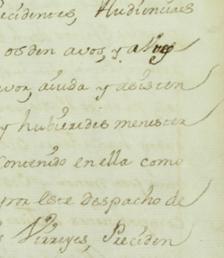 ecidentes, Audiencias
os den avos, y a
vor, aiuda y asisten
y hubieredis menester
Contenido en ella como
este despacho de
Virreyes, Preciden